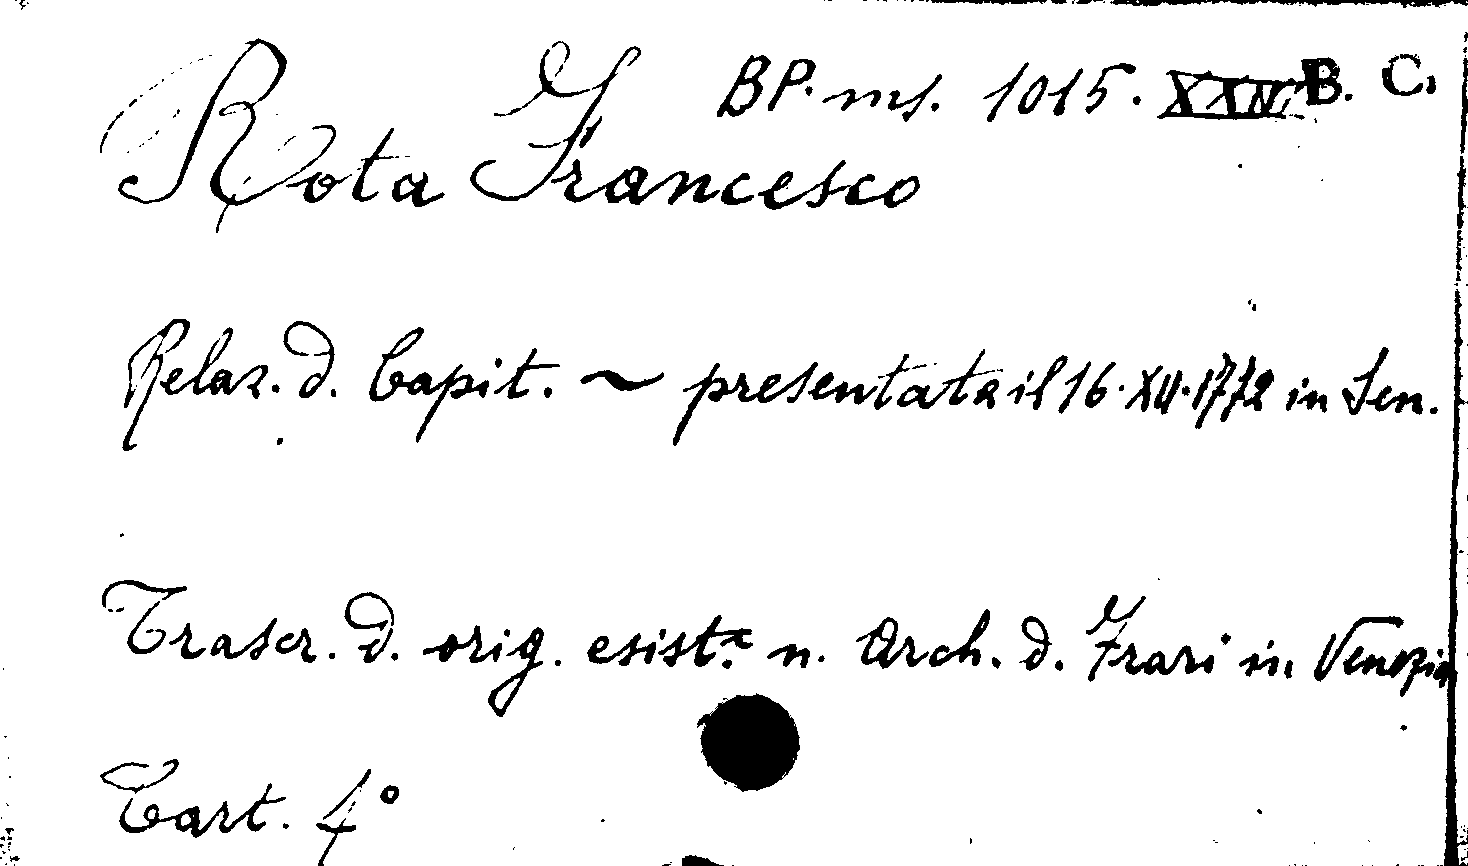 BP. ms. 1015. B. C.
Rota Francesco
Relaz. d. Capit. ~ presentata il 16.XII.1772 in Sen.
Trascr. d. orig. esist.e n. Arch. d. Frari in Venezia
Cart. 4°